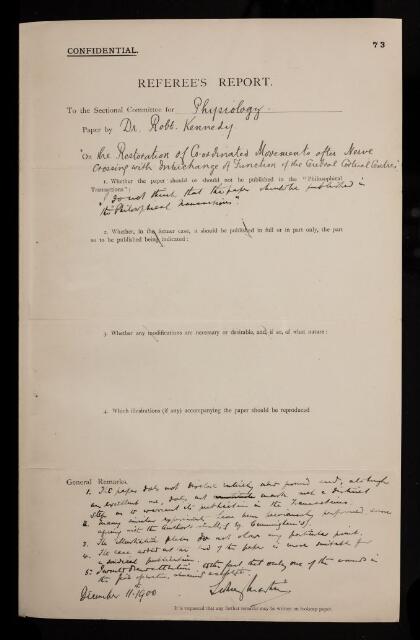 73
CONFIDENTIAL.
REFEREE'S REPORT.
To the Sectional Committee for Physiology.
Paper by Dr. Robt. Kennedy
"On the Restoration of Co-ordinated Movements after Nerve
Crossing with Interchange of Function of the Cerebral Cortical Centres"
1. Whether the paper should or should not be published in the "Philosophical
Transactions":
"I do not think that the paper should be published in
the Philosophical Transactions"
2. Whether, in the former case, it should be published in full or in part only, the part
so to be published being indicated:
3. Whether any modifications are necessary or desirable, and, if so, of what nature:
4. Which illustrations (if any) accompanying the paper should be reproduced
General Remarks.
1. The paper does not involve entirely new ground and, although
an excellent one, does not mark such a distinct
step as to warrant its publication in the Transactions.
2. Many similar experiments have been previously performed, some
agreeing with the author's results, (by Cunningham's).
3. The illustrative plates do not show any particular point.
4. The case noted at the end of the paper is more suitable for
a medical publication.
5. I would draw attention to the fact that only one of the wounds in
the operation remained aseptic.
December 11th 1900
Sidney Martin
It is requested that any further remarks may be written on foolscap paper.